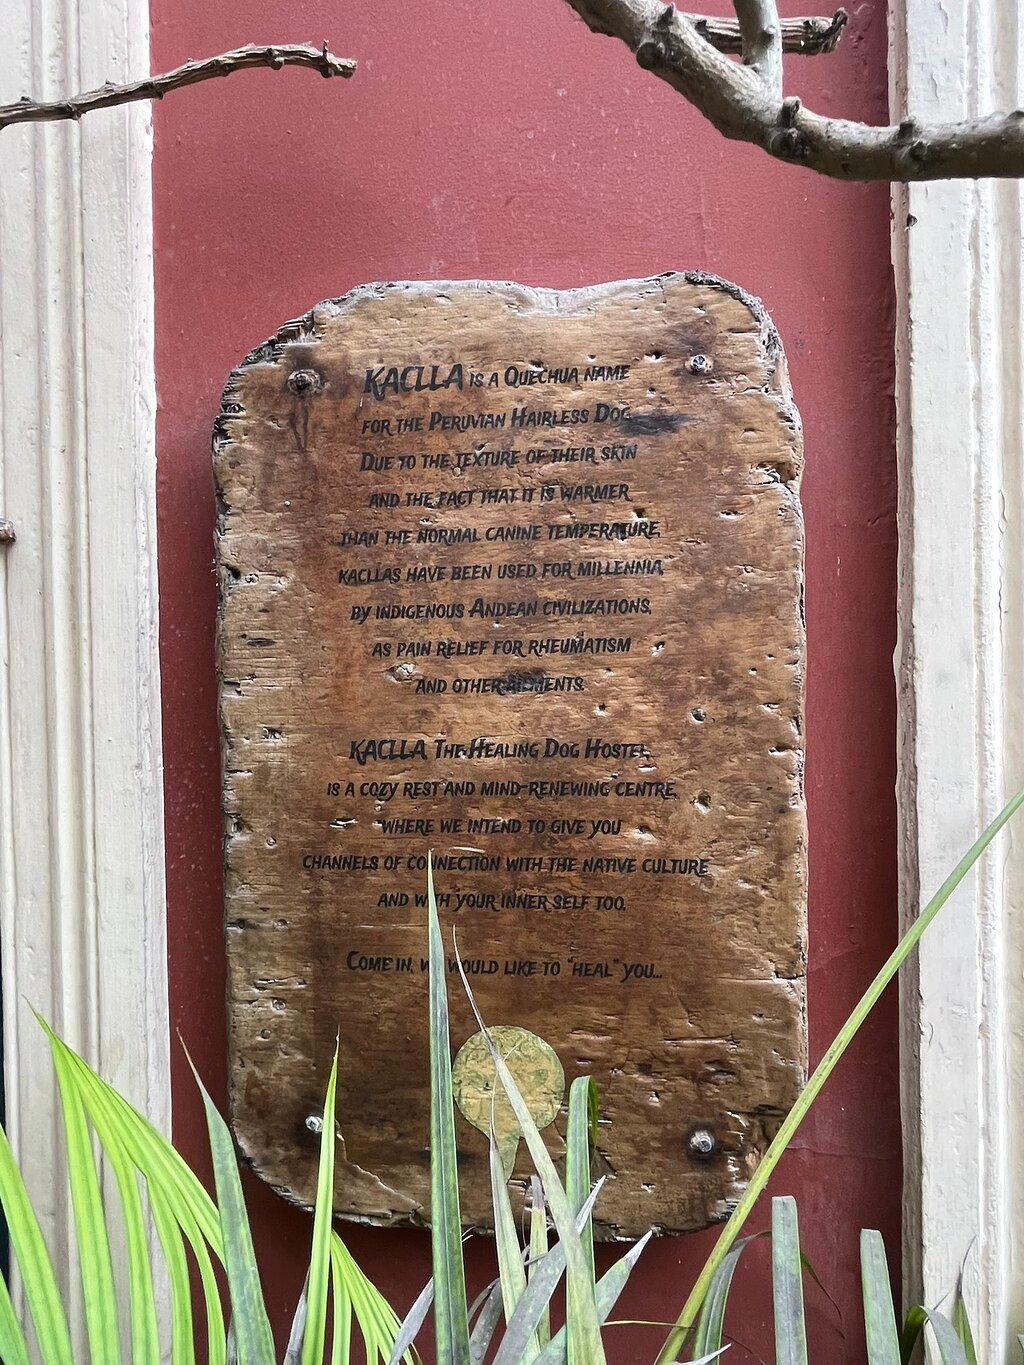 KACLLA IS A QUECHUA NAME
FOR THE PERUVIAN HAIRLESS DOG
DUE TO THE TEXTURE OF THEIR SKIN
AND THE FACT THAT IT IS WARMER
THAN THE NORMAL CANINE TEMPERATURE,
KACLLAS HAVE BEEN USED FOR MILLENNIA,
BY INDIGENOUS ANDEAN CIVILIZATIONS,
AS PAIN RELIEF FOR RHEUMATISM
AND OTHER AILMENTS.
KACLLA THE HEALING DOG HOSTEL
IS A COZY REST AND MIND-RENEWING CENTRE,
WHERE WE INTEND TO GIVE YOU
CHANNELS OF CONNECTION WITH THE NATIVE CULTURE
AND WITH YOUR INNER SELF TOO.
COME IN, WE WOULD LIKE TO "HEAL" YOU...